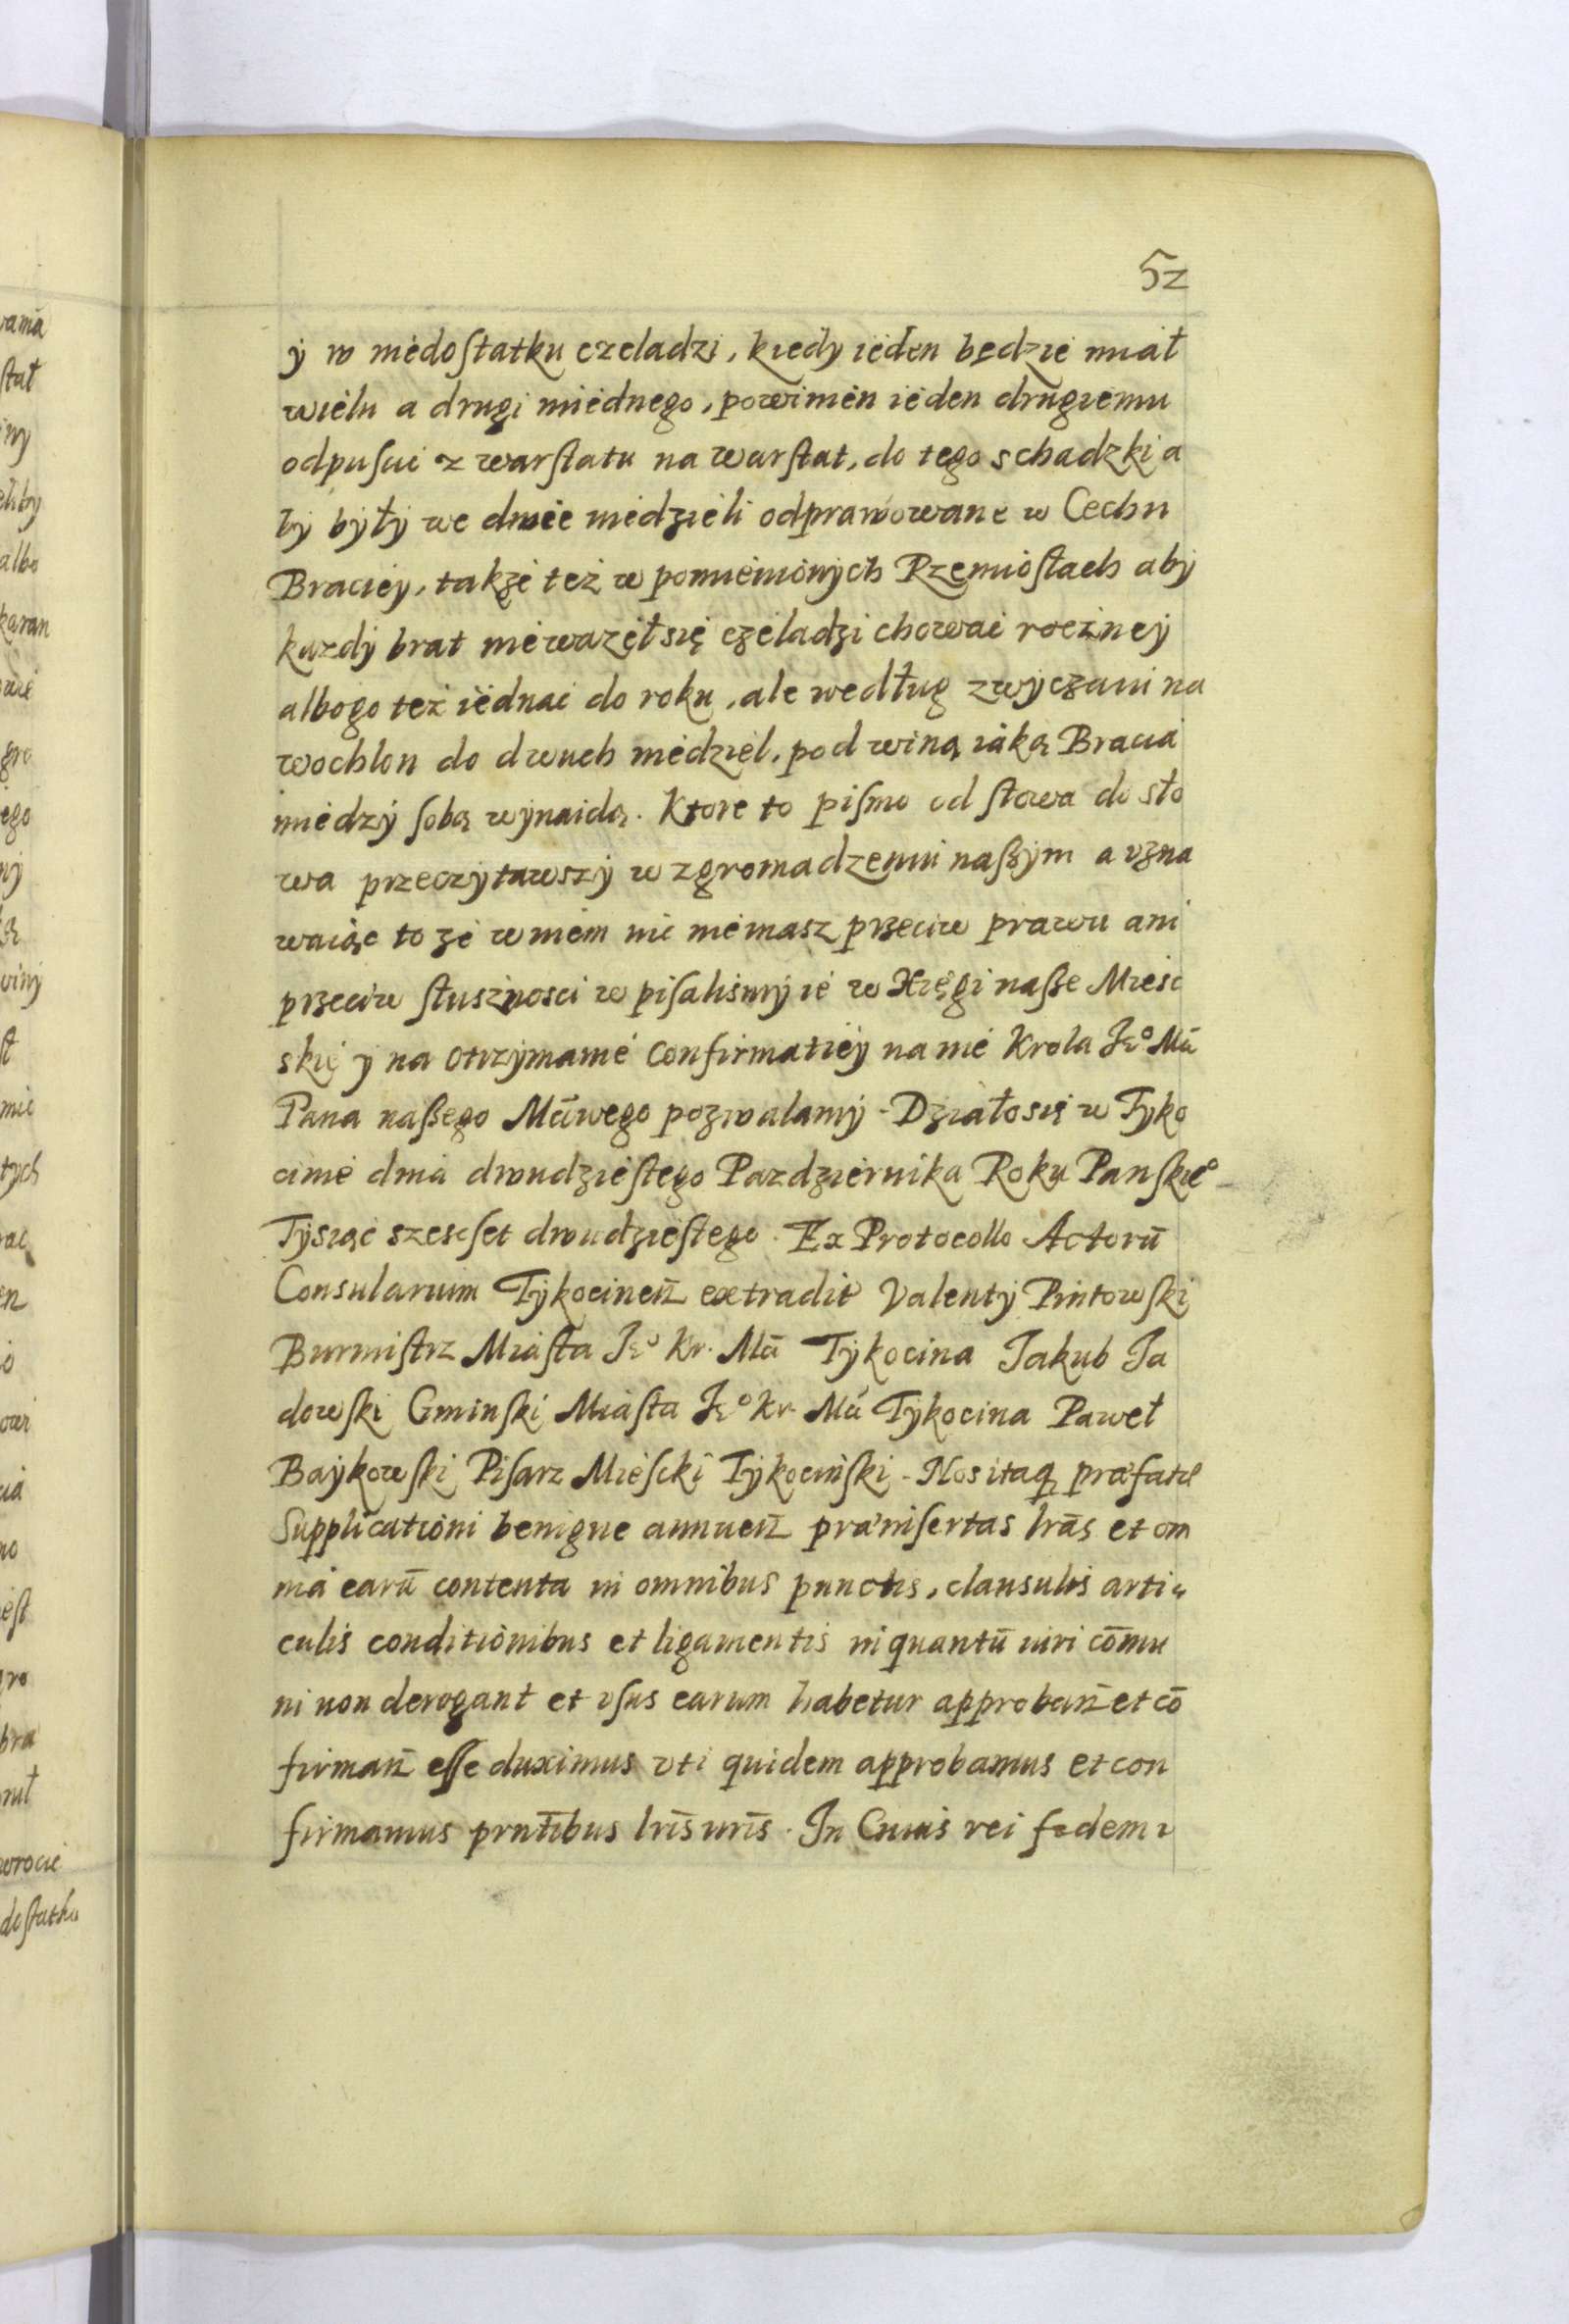 52
ÿ w niedoſtatku czeladzi, kiedy ieden będzie miał
wielu a drugi niiednego, powinien ieden drugiemu
odpuſcić z warſtatu na warſtat, do tego schadzki a
by były we dwie niedzieli odprawowane w Cechu
Braciey, także też w pomienionych Rzemioſłach aby
każdy brat nieważył się czeladzi chować roczney
albogo też iednać do roku, ale według zwyczaiu na
wochlon do dwuch niedziel, pod winą iaką Bracia
miedzy ſobą wynaidą. Ktore to piſmo od ſłowa do sło
wa przeczytawszy w zgromadzeniu naßym a vzna
waiąc to że w niem nic niemasz przeciw prawu ani
przeciw ſłuszności w piſaliśmy ie w Xięgi naße Mieśc
skię y na otrzymanié Confirmatiey na nie Krola Je° Mći
Pana naßego Mćiwego pozwalamy - Działosię w Tyko
cinie dnia dwudzieſtego Pazdziernika Roku Panſkie°
Tysiąc szescſet dwudzieſtego. Ex Protocollo Actorū
Consularium Tykocineñ extradit Valenty Pintowſki
Burmiſtrz Miaſta Je° Kr. Mći Tykocina Jakub Ja
dowſki Gminſki Miaſta Je° Kr. Mći Tykocina Paweł
Baykowſki Piſarz Mieſcki Tykociński - Nos itaq præfatæ
Supplicationi benigne annueñ præinſertas lrās et om
nia earū contenta in omnibus punctis, clausulis arti-
culis conditionibus et ligamentis inquantū iuri cōmu
ni non derogant et vſus earum habetur approbañ et cō
firmañ eſſe duximus vti quidem approbamus et con
firmamus prntībus lrīs nrīs. In Cuius rei fidem